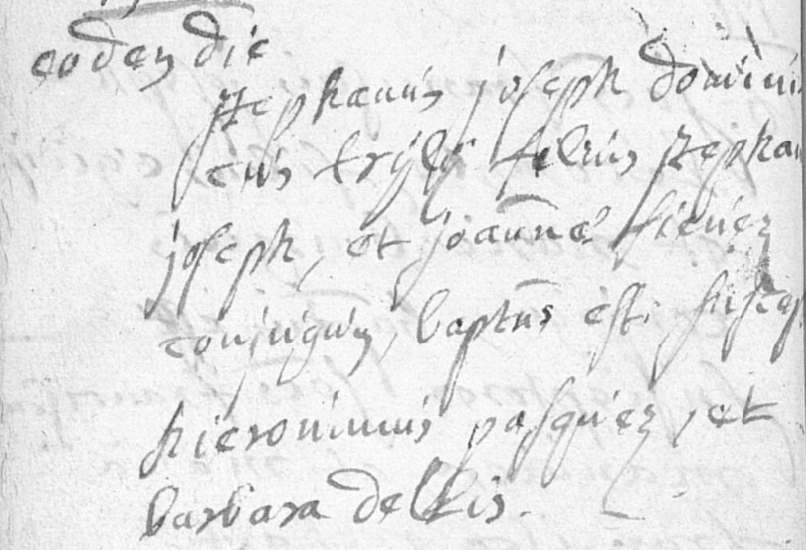 eodem die
stephanus joseph domini
cus tryly filius stepha
joseph, et joannæ sieuez
conjugum, baptus est. suscep
hieronimus pasquez, et
barbara delkis.